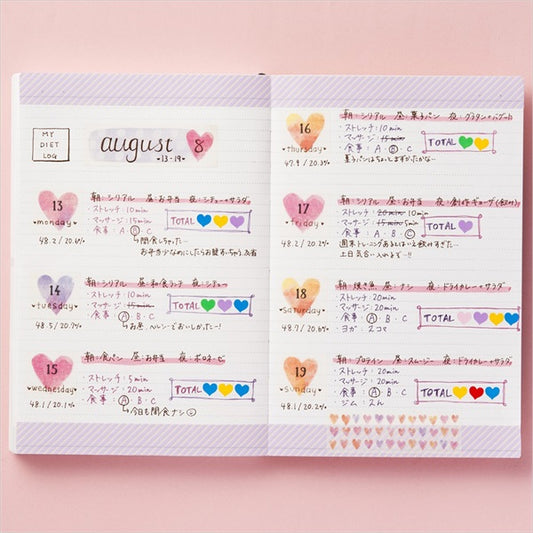 MY
DIET
LOG
august 8
・13-19・
13
monday
48.2 / 20.6%
朝:シリアル 昼:お弁当 夜:シチュー+サラダ
・ストレッチ:10min
・マッサージ:15min
・食事:A Ⓑ C
TOTAL
→間食しちゃった…
お弁当少なめにしたらお腹すいちゃう
14
tuesday
48.5 / 20.7%
朝:シリアル 昼:和食ランチ 夜:シチュー
・ストレッチ:10min
・マッサージ:10min
・食事:Ⓐ B・C
TOTAL
→お昼、ヘルシーでおいしかったー!
15
wednesday
48.1 / 20.1%
朝:食パン 昼:お弁当 夜:ボロネーゼ
・ストレッチ:5min
・マッサージ:20min
・食事:Ⓐ B・C
TOTAL
→今日も間食ナシ
16
thursday
47.9 / 20.3%
朝:シリアル 昼:菓子パン 夜:グラタン+バゲット
・ストレッチ:10min
・マッサージ:15min
・食事:A・Ⓑ・C
TOTAL
菓子パンはちょっとまずかったかな…
17
friday
48.2 / 20.1%
朝:シリアル 昼:お弁当 夜:創作ギョーザ(飲み)
・ストレッチ:20min 10min
・マッサージ:15min 5min
・食事:A B・Ⓒ
TOTAL
週末トレーニングあるとはいえ飲みすぎた…
土日気合入れるぞー!!
18
saturday
48.7 / 20.6%
朝:焼き魚 昼:ナシ 夜:ドライカレー+サラダ
・ストレッチ:20min
・マッサージ:20min
・食事:Ⓐ B・C
・ヨガ:2コマ
TOTAL
19
sunday
48.1 / 20.2%
朝:プロテイン 昼:スムージー 夜:ドライカレー+サラダ
・ストレッチ:20min
・マッサージ:20min
・食事:Ⓐ B・C
・ジム:
TOTAL